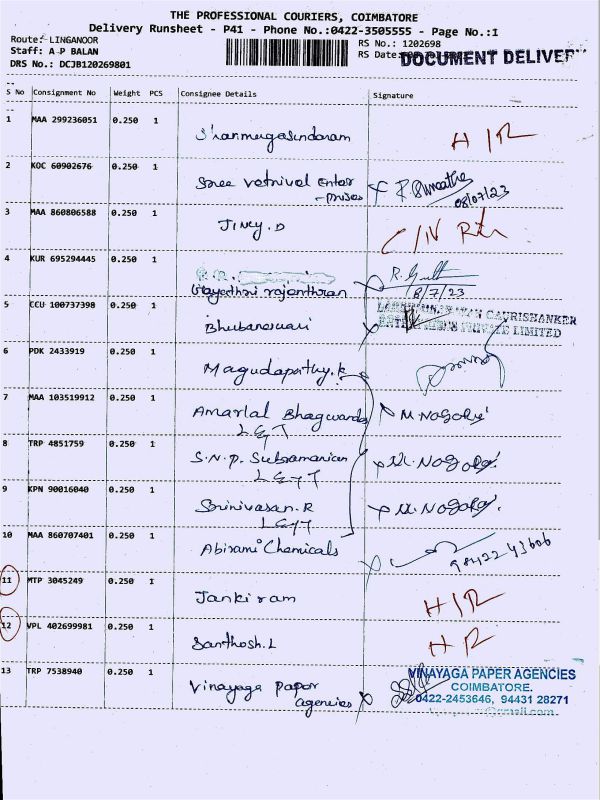 THE PROFESSIONAL COURIERS, COIMBATORE
Delivery Runsheet - P41 - Phone No.:0422-3505555 - Page No.:1
Route: LINGANOOR
Staff: A P BALAN
DRS No.: DCJB120269801
RS No.: 1202698
RS Date:
DOCUMENT DELIVERY
S No Consignment No Weight PCS Consignee Details Signature
1 MAA 299236051 0.250 1 Shanmugasundaram H/R
2 KOC 60902676 0.250 1 Sree vetrivel Enter
-prises
08/07/23
3 MAA 860806588 0.250 1 Jincy.D
4 KUR 695294445 0.250 1
Gayathri rajanthran
8/7/23
5 CCU 100737398 0.250 1 Bhubaneswari
GAURISHANKER
PRIVATE LIMITED
6 PDK 2433919 0.250 1 Magudapathy.K
7 MAA 103519912 0.250 1 Amarlal Bhagwands M. NAGORI
L&T
8 TRP 4851759 0.250 1 S.N.P. Subramanian M. NAGORI
L&T
9 KPN 90016040 0.250 1 Srinivasan.R M. NAGORI
L&T
10 MAA 860707401 0.250 1 Abirami Chemicals
98422 43606
11 MTP 3045249 0.250 1 Jankiram H/R
12 VPL 402699981 0.250 1 Santhosh.L H R
13 TRP 7538940 0.250 1 Vinayaga paper
agencies
VINAYAGA PAPER AGENCIES
COIMBATORE.
0422-2453646, 94431 28271